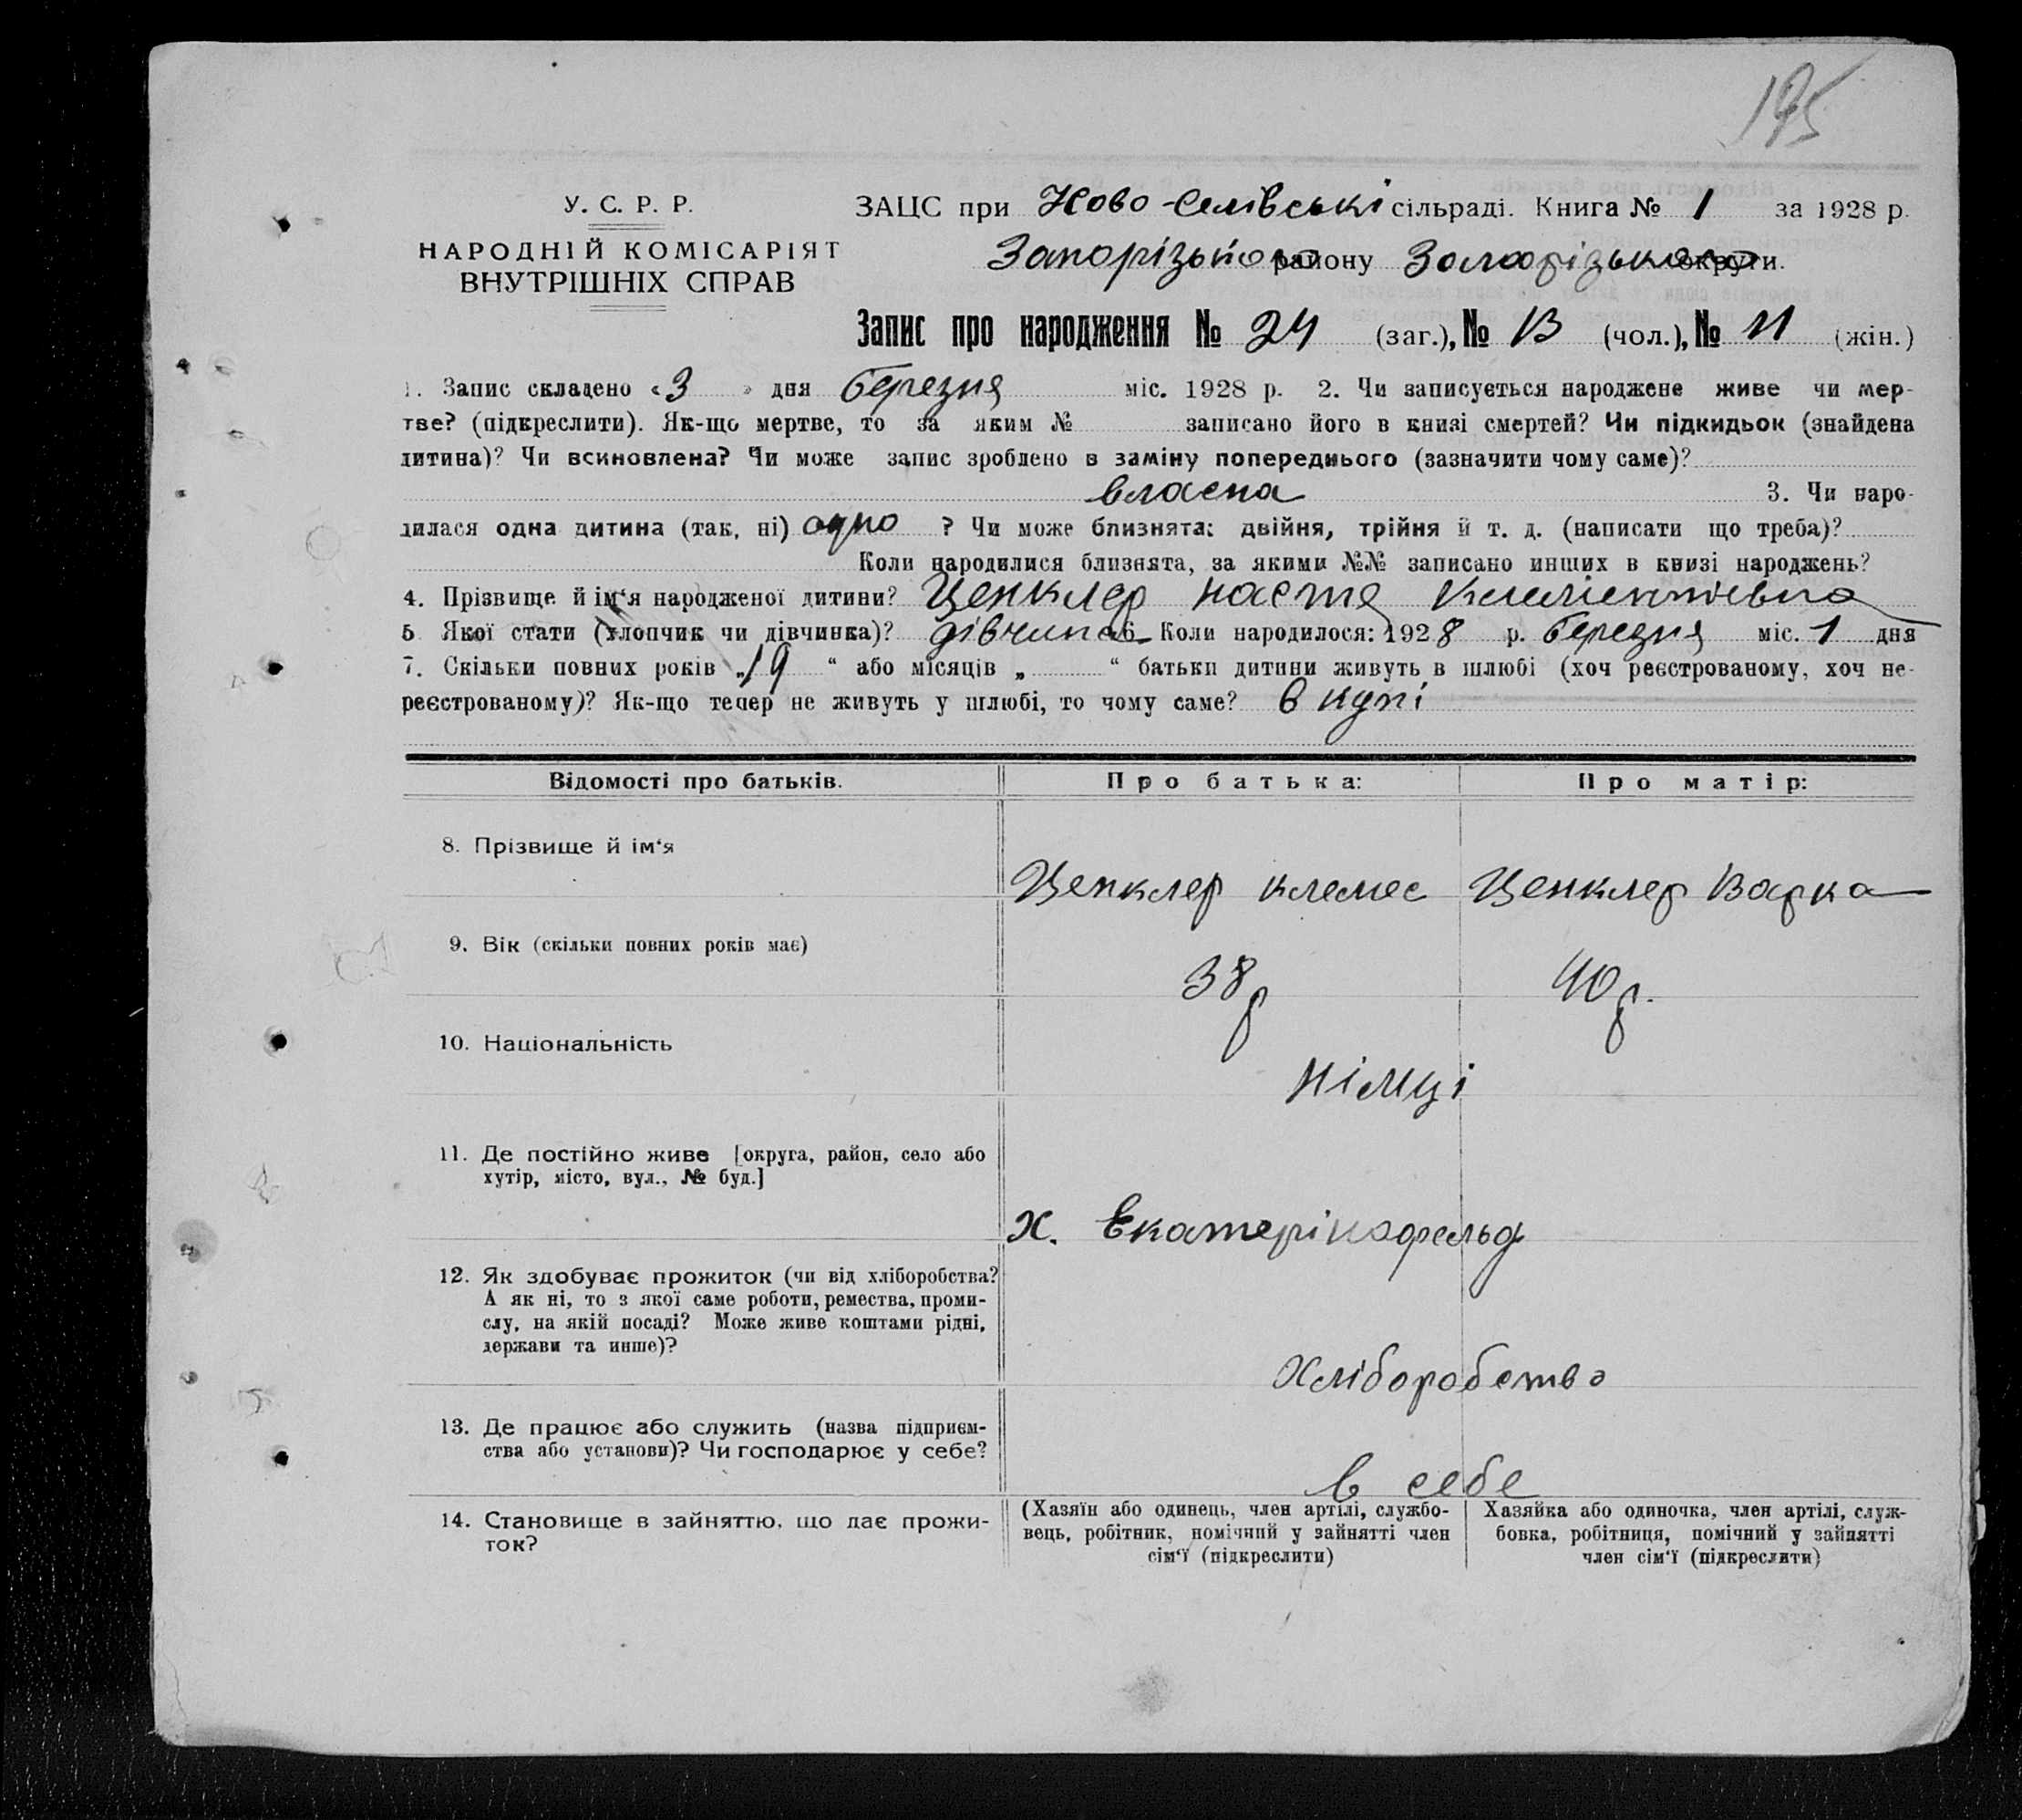 195
У. С. Р. Р.
НАРОДНІЙ КОМІСАРІЯТ
ВНУТРІШНІХ СПРАВ
ЗАЦС при Ново-Селівські сільраді. Книга № 1 за 1928 р.
Запорізького району Запорізького округи.
Запис про народження № 24 (заг.), № 13 (чол.), № 11 (жін.)
1. Запис складено «3» дня березня міс. 1928 р. 2. Чи записується народжене живе чи мер-
тве? (підкреслити). Як-що мертве, то за яким № записано його в книзі смертей? Чи підкидьок (знайдена
дитина)? Чи всиновлена? Чи може запис зроблено в заміну попереднього (зазначити чому саме)?
власна 3. Чи наро-
дилася одна дитина (так, ні) одно ? Чи може близнята: двійня, трійня й т. д. (написати що треба)?
Коли народилися близнята, за якими №№ записано инших в книзі народжень?
4. Прізвище й ім‘я народженої дитини? Ценклер Настя Клементієвна
5 Якої стати (хлопчик чи дівчинка)? дівчина 6. Коли народилося: 1928 р. березня міс. 1 дня
7. Скільки повних років „19“ або місяців „ “ батьки дитини живуть в шлюбі (хоч реєстрованому, хоч не-
реєстрованому)? Як-що тепер не живуть у шлюбі, то чому саме? в купі
Відомості про батьків. Про батька: Про матір:
8. Прізвище й ім‘я Ценклер Клемес Ценклер Варка
9. Вік (скільки повних років має) 38 р 40 р.
10. Національність Німці
11. Де постійно живе [округа, район, село або
хутір, місто, вул., № буд.]
х. Екатерінофельд
12. Як здобуває прожиток (чи від хліборобства?
А як ні, то з якої саме роботи, ремества, проми-
слу, на якій посаді? Може живе коштами рідні,
держави та инше)?
Хліборобство
13. Де працює або служить (назва підприєм-
ства або установи)? Чи господарює у себе?
в себе
14. Становище в зайняттю, що дає прожи-
ток?
(Хазяїн або одинець, член артілі, службо-
вець, робітник, помічний у зайнятті член
сім‘ї (підкреслити)
Хазяйка або одиночка, член артілі, служ-
бовка, робітниця, помічний у зайнятті
член сім‘ї (підкреслити)